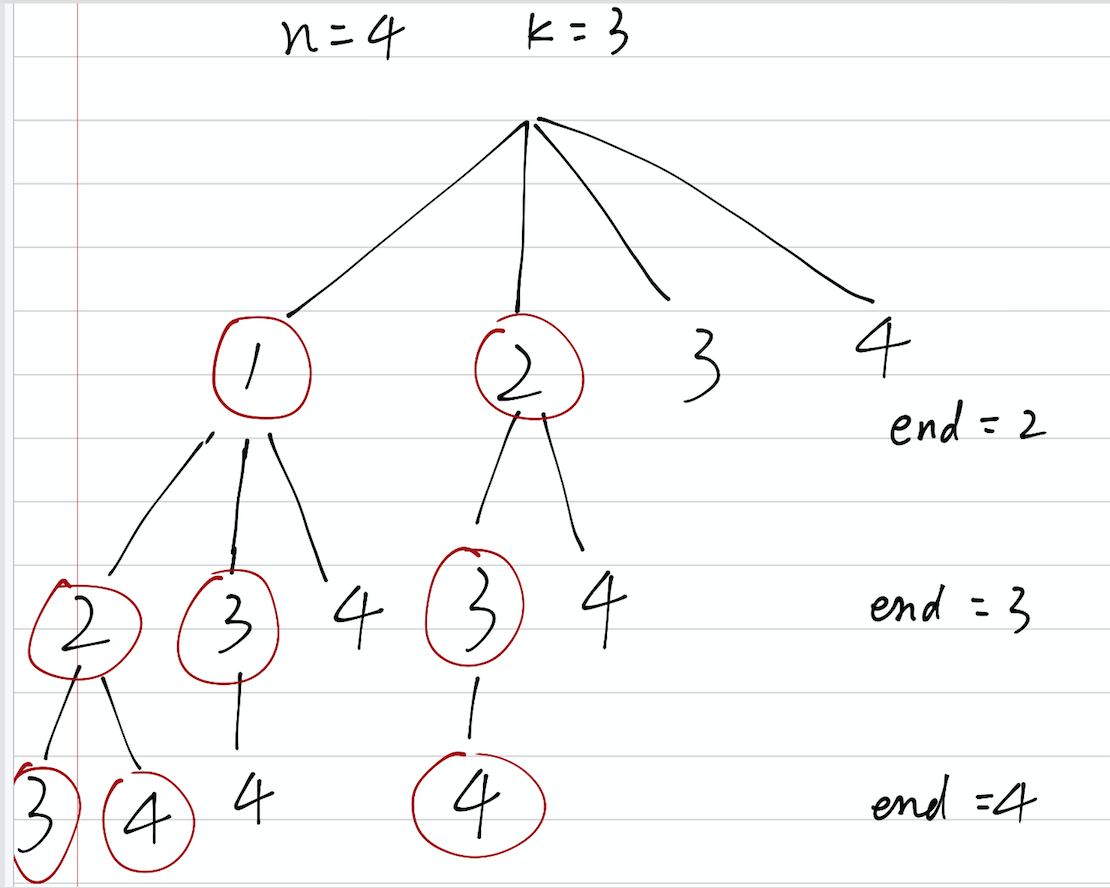 n=4 k=3
1 2 3 4
end = 2
2 3 4 3 4
end = 3
3 4 4 4
end =4